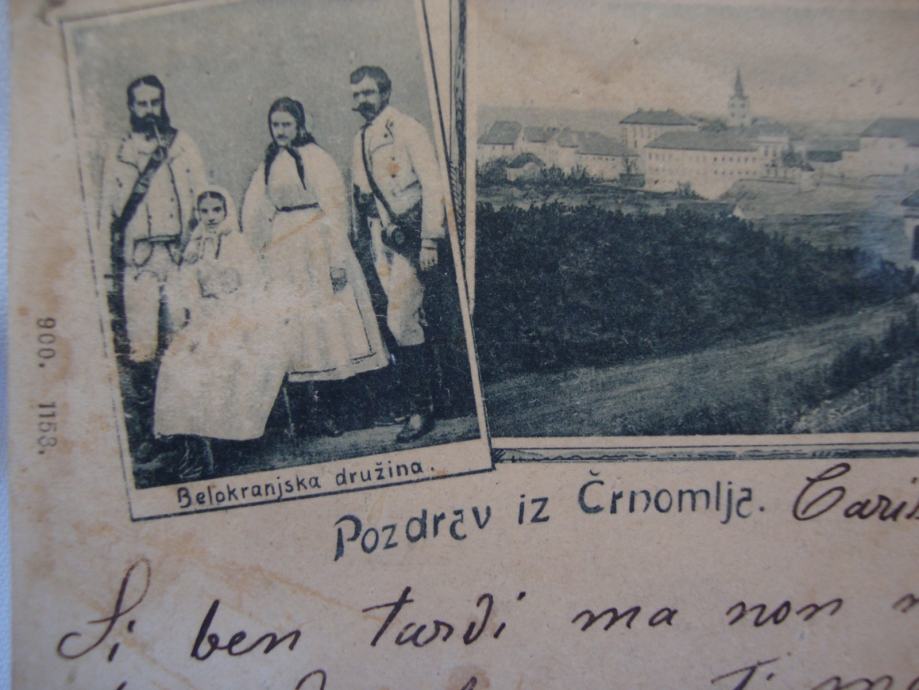 900. 1153.
Belokranjska družina.
Pozdrav iz Črnomlja.
Si ben tardi ma non
ti